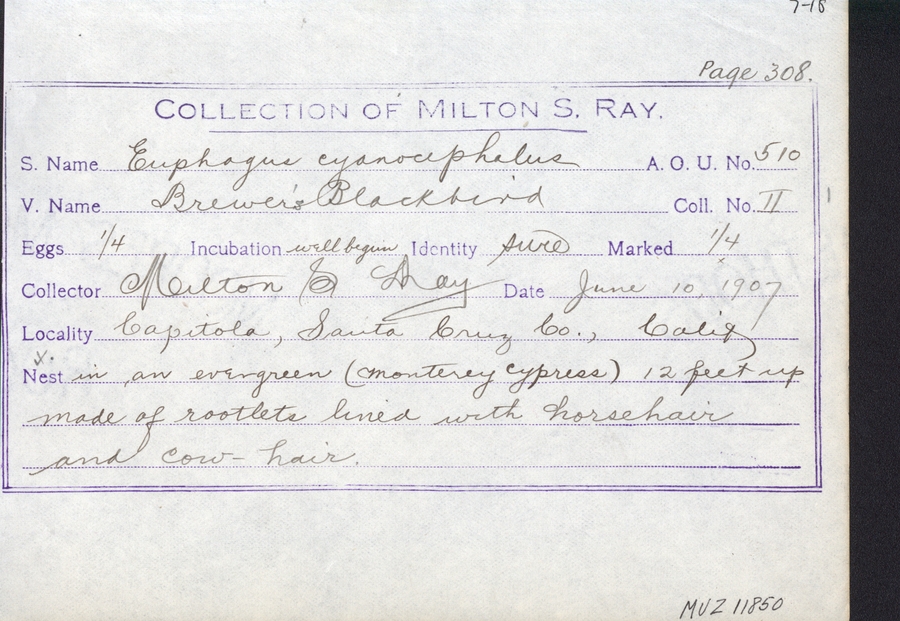 7-18
Page 308.
COLLECTION OF MILTON S. RAY.
S. Name Euphagus cyanocephalus A. O. U. No. 510
V. Name Brewer's Blackbird Coll. No. II
Eggs 1/4 Incubation well begun Identity sure Marked 1/4
Collector Milton S Ray Date June 10, 1907
Locality Capitola, Santa Cruz Co., Calif
x.
Nest in an evergreen (monterey cypress) 12 feet up
made of rootlets lined with horsehair
and cow-hair.
MVZ 11850